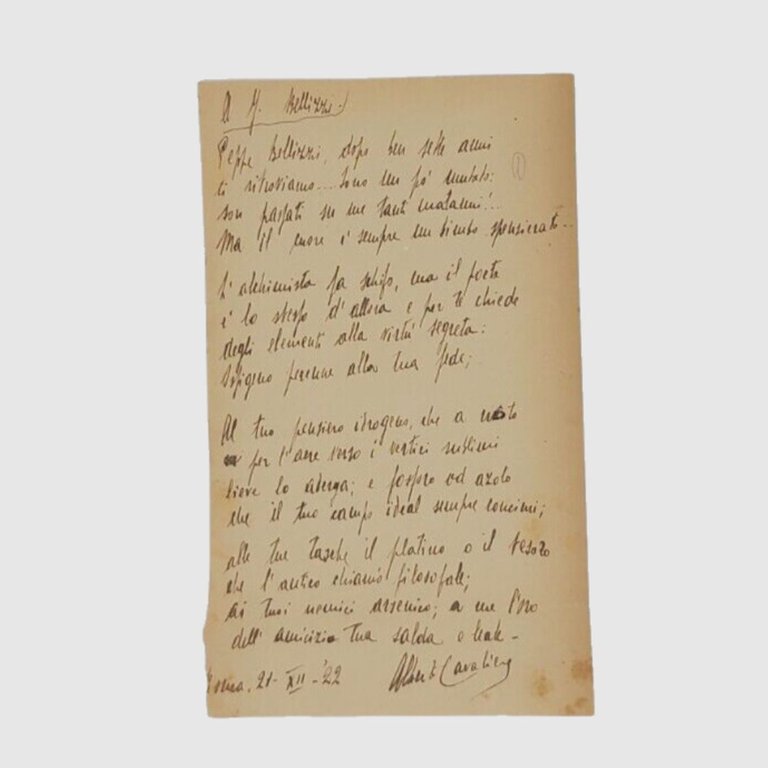 A G. Bellizzi
Peppe Bellizzi, dopo ben sette anni
ti ritroviamo... Sono un pò mutato:
son passati su me tanti malanni!...
Ma il cuore è sempre un bimbo spensierato...
L'alchimista fa schifo, ma il poeta
è lo stesso d'allora e per te chiede
degli elementi alla virtù segreta:
ossigeno perenne alla tua fede;
Al tuo pensiero idrogeno, che a
per l'aere verso i vertici sublimi
lieve lo aderga; e fosforo ed azoto
che il tuo campo ideal sempre concimi;
alle tue tasche il platino o il tesoro
che l'antico chiamò filosofale;
ai tuoi nemici arsenico; a me l'oro
dell'amicizia tua salda e leale -
Roma, 21-XII-'22 Alberto Cavaliere
(1)